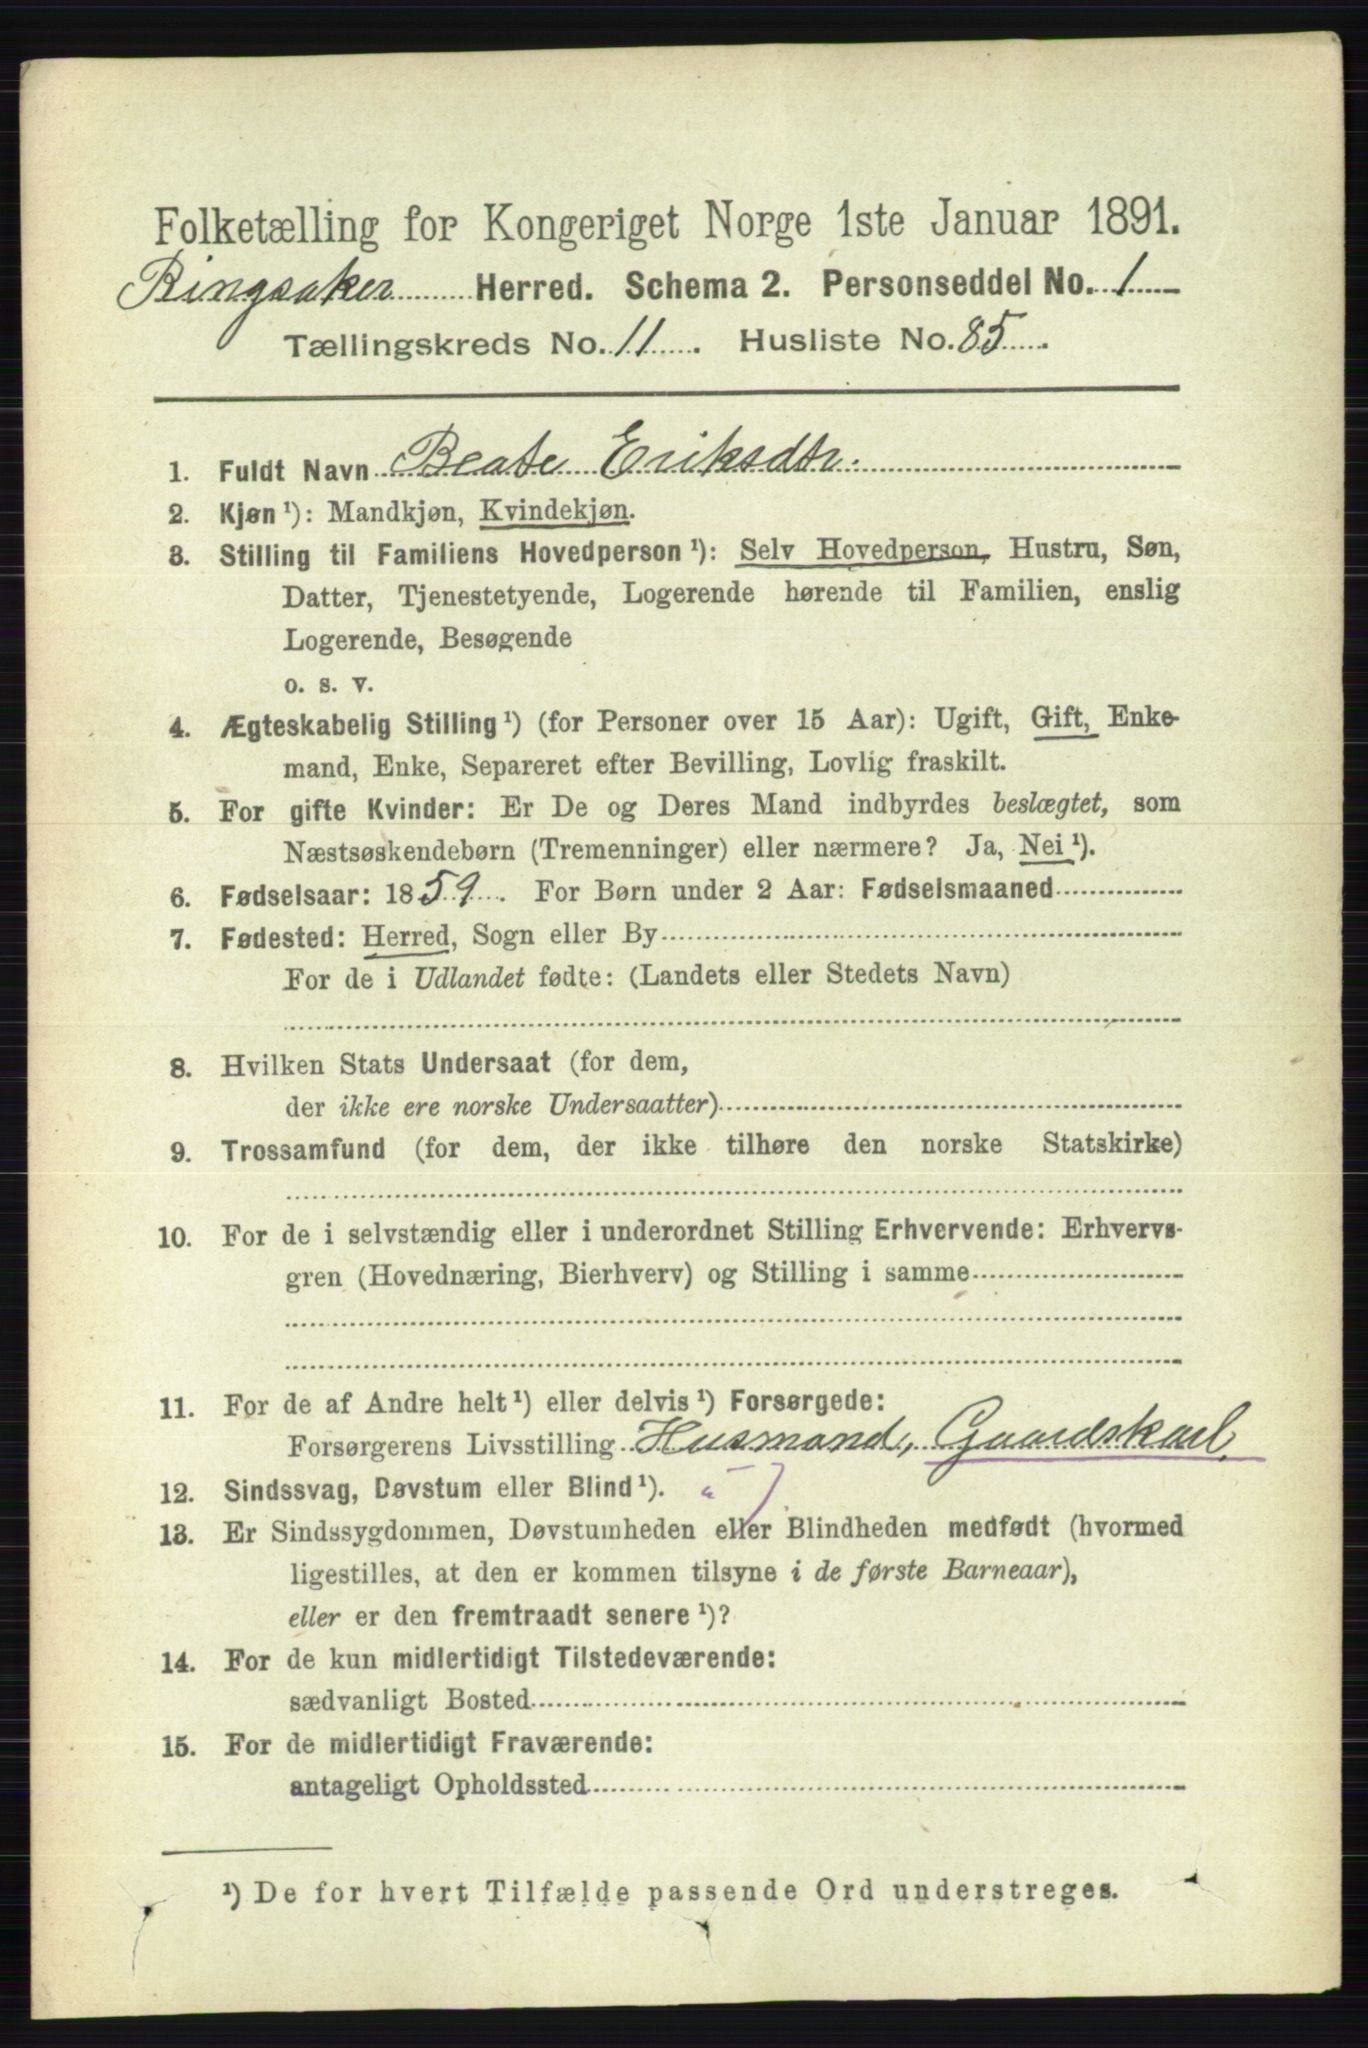 Folketælling for Kongeriget Norge 1ste Januar 1891.
Ringsaker Herred. Schema 2. Personseddel No. 1
Tællingskreds No. 11. Husliste No. 85.
1. Fuldt Navn Beate Eriksdtr.
2. Kjøn ¹): Mandkjøn, Kvindekjøn.
3. Stilling til Familiens Hovedperson ¹): Selv Hovedperson, Hustru, Søn,
Datter, Tjenestetyende, Logerende hørende til Familien, enslig
Logerende, Besøgende
o. s. v.
4. Ægteskabelig Stilling ¹) (for Personer over 15 Aar): Ugift, Gift, Enke-
mand, Enke, Separeret efter Bevilling, Lovlig fraskilt.
5. For gifte Kvinder: Er De og Deres Mand indbyrdes beslægtet, som
Næstsøskendebørn (Tremenninger) eller nærmere? Ja, Nei ¹).
6. Fødselsaar: 1859. For Børn under 2 Aar: Fødselsmaaned
7. Fødested: Herred, Sogn eller By
For de i Udlandet fødte: (Landets eller Stedets Navn)
8. Hvilken Stats Undersaat (for dem,
der ikke ere norske Undersaatter)
9. Trossamfund (for dem, der ikke tilhøre den norske Statskirke)
10. For de i selvstændig eller i underordnet Stilling Erhvervende: Erhvervs-
gren (Hovednæring, Bierhverv) og Stilling i samme
11. For de af Andre helt ¹) eller delvis ¹) Forsørgede:
Forsørgerens Livsstilling Husmand, Gaardskarl
12. Sindssvag, Døvstum eller Blind ¹).
13. Er Sindssygdommen, Døvstumheden eller Blindheden medfødt (hvormed
ligestilles, at den er kommen tilsyne i de første Barneaar),
eller er den fremtraadt senere ¹)?
14. For de kun midlertidigt Tilstedeværende:
sædvanligt Bosted
15. For de midlertidigt Fraværende:
antageligt Opholdssted
¹) De for hvert Tilfælde passende Ord understreges.